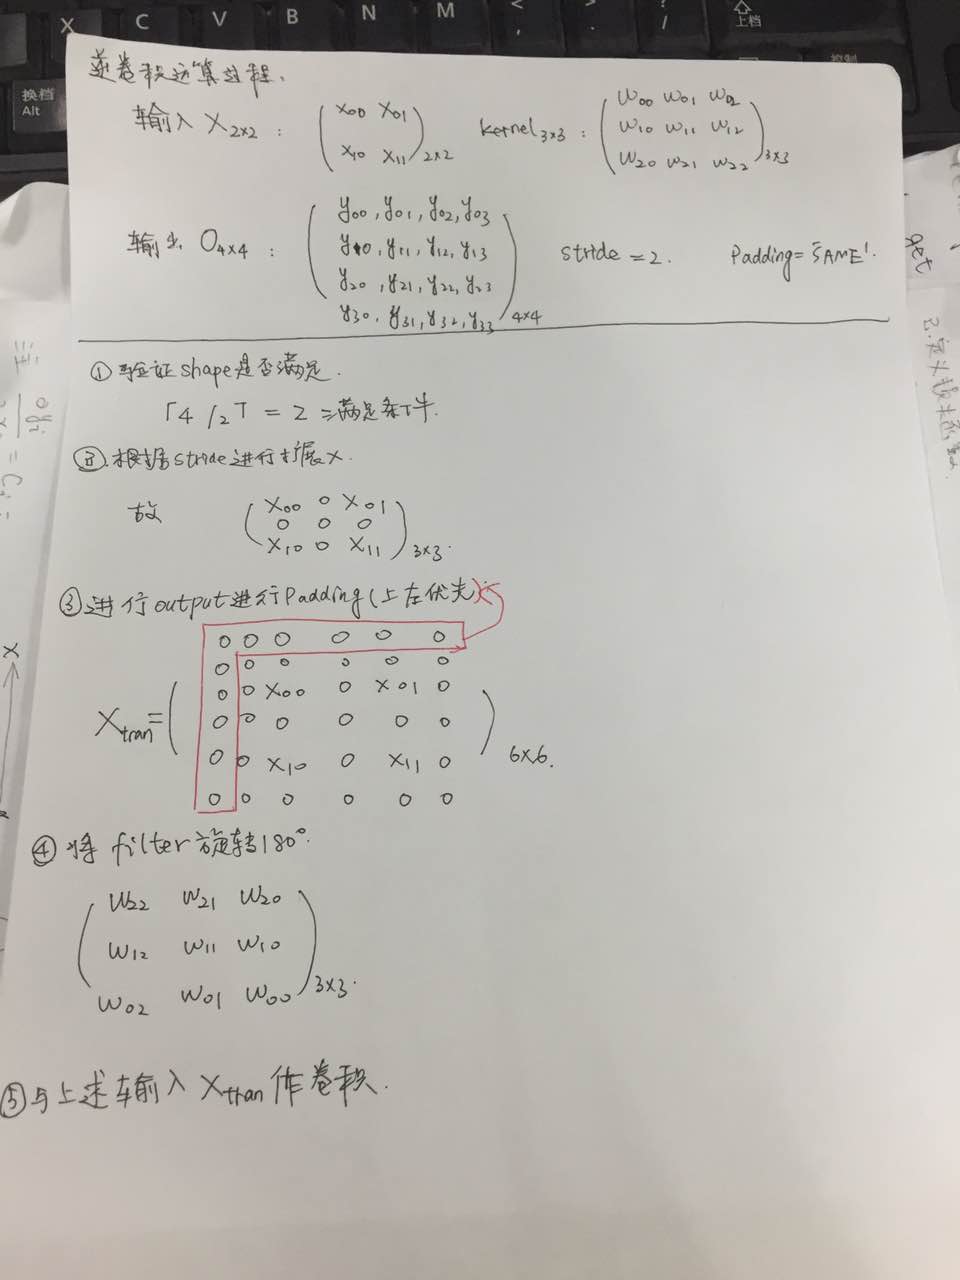 X C V B N M < > ? 上档
, . /
换档
Alt
控制
逆卷积运算过程.
输入 X2×2 : ( x00 x01
x10 x11 )2×2
kernel3×3 : ( w00 w01 w02
w10 w11 w12
w20 w21 w22 )3×3
输出 O4×4 : ( y00, y01, y02, y03
y10, y11, y12, y13
y20, y21, y22, y23
y30, y31, y32, y33 )4×4
stride = 2. Padding='SAME'.
① 验证shape是否满足.
⌈4 /2⌉ = 2 ⇒满足条件.
②.根据stride进行扩展X.
故 ( X00 0 X01
0 0 0
X10 0 X11 )3×3.
③进行output进行Padding(上左优先)
0 0 0 0 0 0
0 0 0 0 0 0
Xtran= ( 0 0 X00 0 X01 0
0 0 0 0 0 0
0 0 X10 0 X11 0
0 0 0 0 0 0 ) 6×6.
④ 将 filter 旋转180°.
( W22 W21 W20
W12 W11 W10
W02 W01 W00 )3×3.
⑤与上述输入 Xtran 作卷积.
get
X